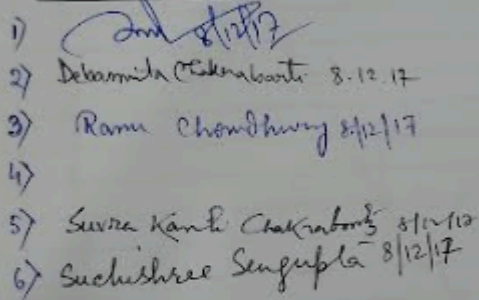 1) 8/12/17
2) Debarmita Chakrabarti 8.12.17
3) Ranu Chowdhury 8/12/17
4)
5) Kanti Chakraborty 8/12/17
6) Suchishree Sengupta 8/12/17